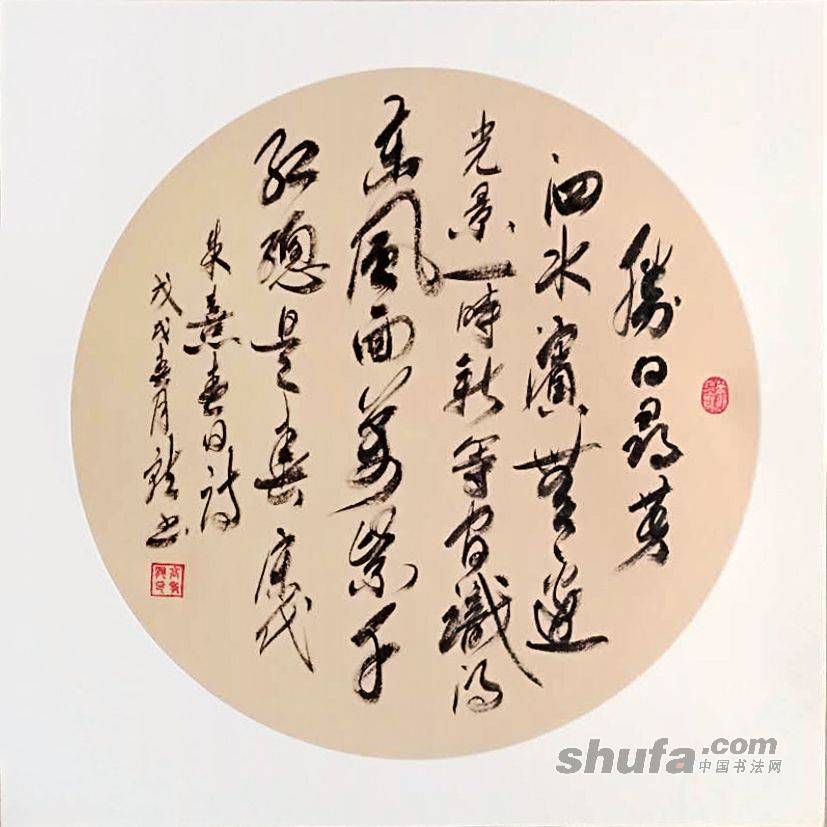 勝日尋芳
泗水濱無邊
光景一時新等閒識得
東風面萬紫千
紅總是春宋代
朱熹春日詩
戊戌春月書
shufa.com
中国书法网